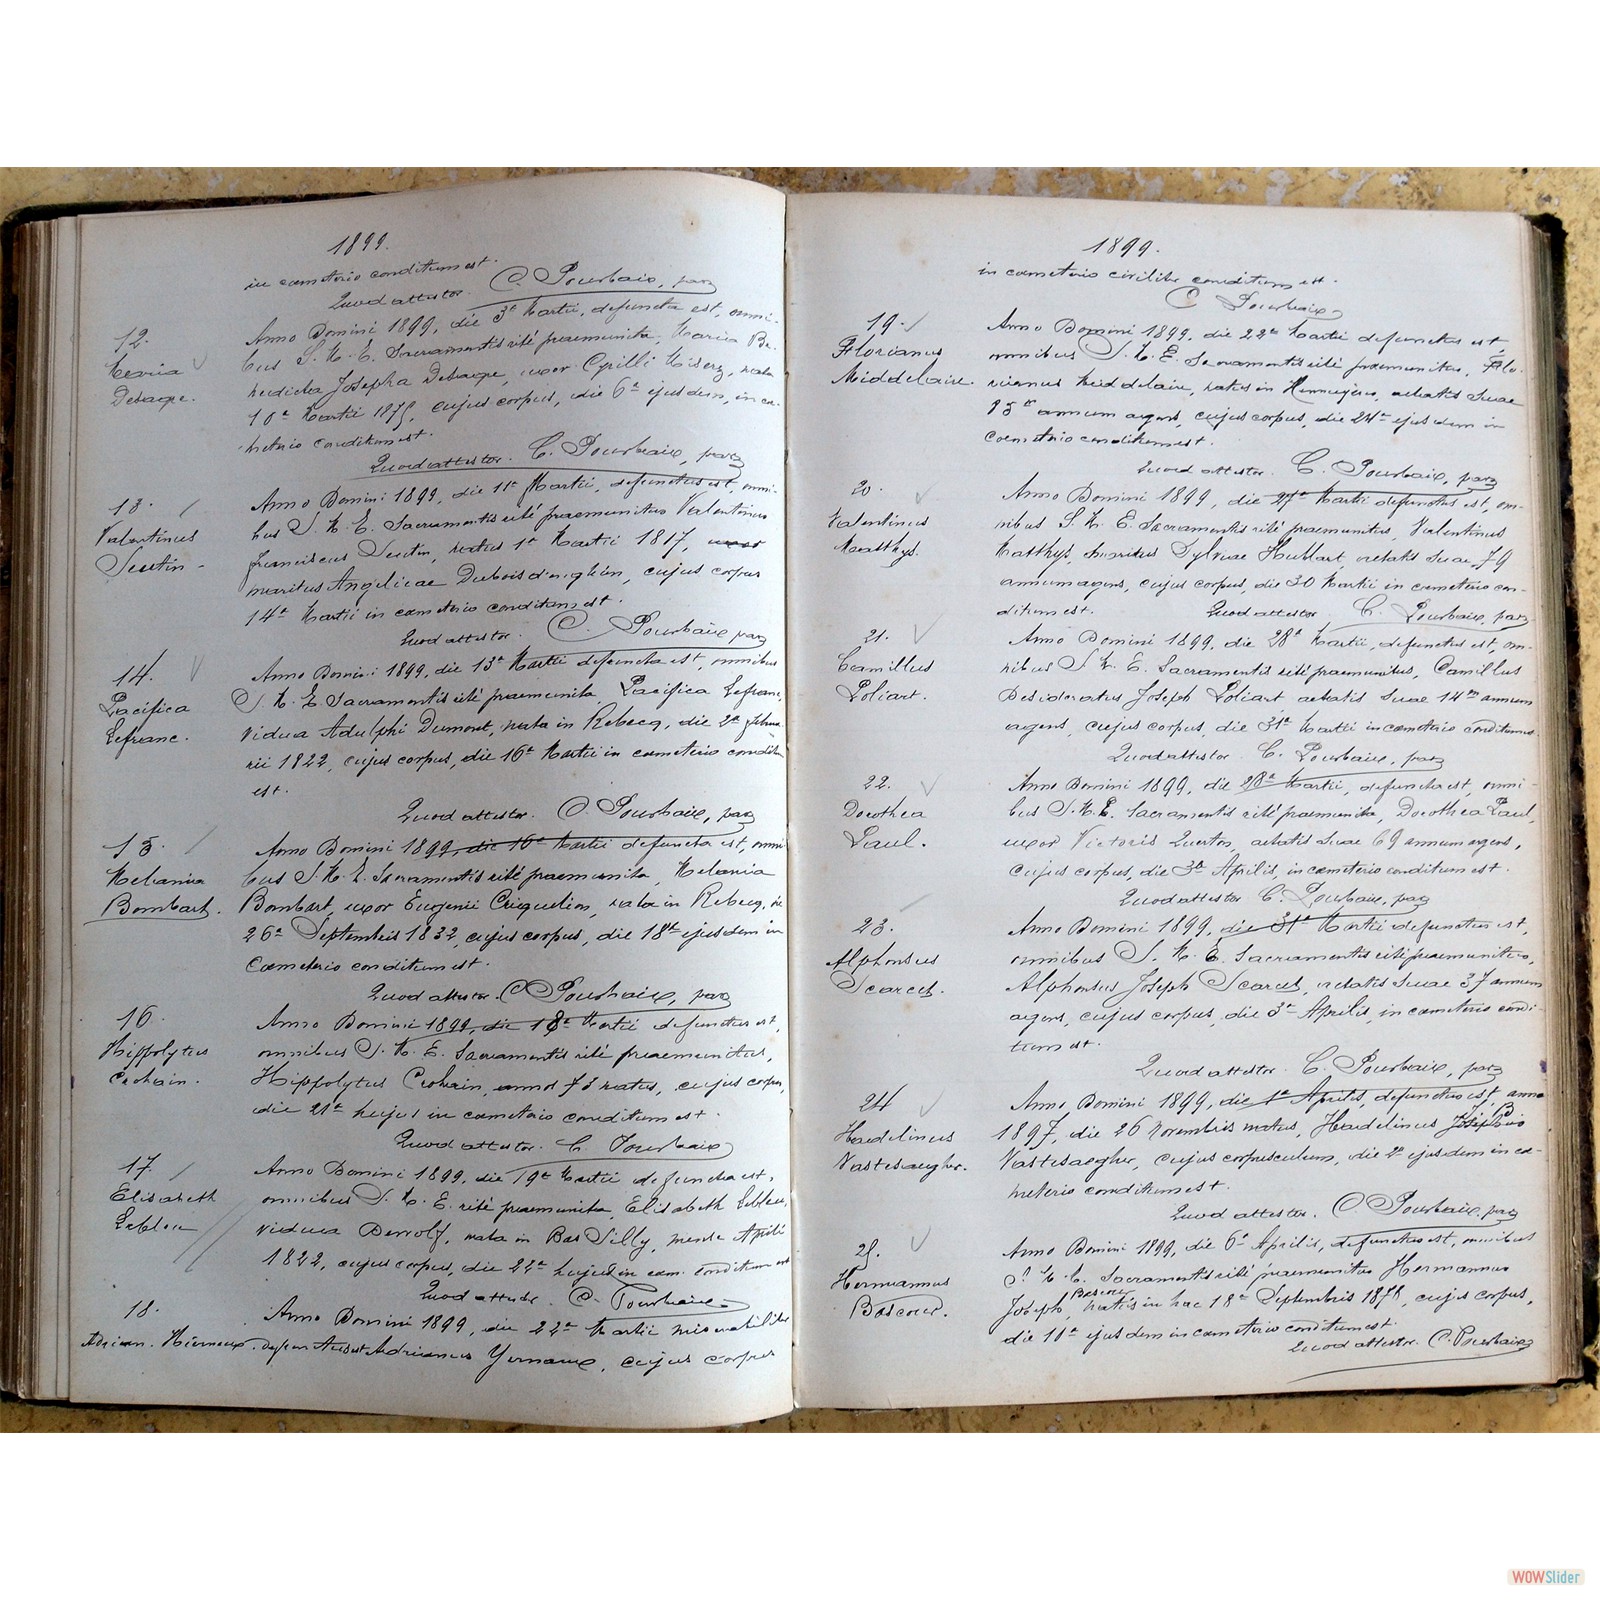 1899.
in cœmeterio conditum est.
Quod attestor. C. Pourbaix, par
12.
Maria
Debacque.
Anno Domini 1899, die 3a Martii, defuncta est, omni-
bus S. M. E. Sacramentis rité praemunita, Maria Be-
nedicta Josepha Debacque, uxor Cyrilli Miserz, nata
10a Martii 1875, cujus corpus, die 6a ejusdem, in cœ-
meterio conditum est.
Quod attestor. C. Pourbaix, par
13.
Valentinus
Seutin.
Anno Domini 1899, die 11a Martii, defunctus est, omni-
bus S. M. E. Sacramentis rité praemunitus Valentinus
Franciscus Seutin, natus 1a Martii 1817, uxor
maritus Angelicae Dubois d'enghien, cujus corpus
14a Martii in cœmeterio conditum est.
Quod attestor. C. Pourbaix, par
14.
Pacifica
Lefranc.
Anno Domini 1899, die 13a Martii defuncta est, omnibus
S. M. E. Sacramentis rité praemunita, Pacifica Lefranc,
vidua Adulphi Dumont, nata in Rebecq, die 2a februa
rii 1822, cujus corpus, die 16a Martii in cœmeterio conditum
est.
Quod attestor. C. Pourbaix, par
15.
Melania
Bombart.
Anno Domini 1899, die 16a Martii defuncta est, omni
bus S. M. E. Sacramentis rité praemunita, Melania
Bombart, uxor Eugenii Criquelion, nata in Rebecq, in
26a Septembris 1832, cujus corpus, die 18a ejusdem in
Cœmeterio conditum est.
Quod attestor. C. Pourbaix, par
16
Hippolytus
Crohain.
Anno Domini 1899, die 18a Martii defunctus est,
omnibus S. M. E. Sacramentis rité praemunitus,
Hippolytus Crohain, annos 73 natus, cujus corpus,
die 21a hujus in cœmeterio conditum est.
Quod attestor. C. Pourbaix
17.
Elisabeth
Lebleu
Anno Domini 1899, die 19a Martii defuncta est,
omnibus S. M. E. rité praemunita, Elisabeth Lebleu,
vidua Derrolf, nata in Bas Silly, mense Aprili
1822, cujus corpus, die 22a hujus in cœm. conditum est
Quod attestor. C. Pourbaix
18.
Adrian. Hernaux.
Anno Domini 1899, die 22a Martii miserabiliter
Adrianus Yernaux, cujus corpus
1899.
in cœmeterio civiliter conditum est.
C Pourbaix
19.
Florianus
Middelaire.
Anno Domini 1899, die 22a Martii defunctus est
omnibus S. M. E. Sacramentis rité praemunitus, Flo-
rianus Meiddelair, natus in Hennuyères, aetatis suae
85m annum agens, cujus corpus, die 24a ejusdem in
Cœmeterio conditum est.
Quod attestor. C. Pourbaix, par
20.
Valentinus
Matthys.
Anno Domini 1899, die 27a Martii defunctus est, om-
nibus S. M. E. Sacramentis rité praemunitus, Valentinus
Matthys, maritus Sylviae Hublart, aetatis suae 79
annum agens, cujus corpus, die 30 Martii in cœmeterio con-
ditum est. Quod attestor C. Pourbaix, par
21.
Camillus
Poliart.
Anno Domini 1899, die 28a Martii, defunctus est, om-
nibus S. M. E. Sacramentis rité praemunitus, Camillus
Desideratus Joseph Poliart, aetatis suae 14m annum
agens, cujus corpus, die 31a Martii in cœmeterio conditum.
Quod attestor C. Pourbaix, par
22.
Dorothea
Paul.
Anno Domini 1899, die 28a Martii, defuncta est, omni-
bus S. M. E. Sacramentis rité praemunita, Dorothea Paul,
uxor Victoris Querton, aetatis suae 69 annum agens,
cujus corpus, die 3a Aprilis, in cœmeterio conditum est.
Quod attestor C. Pourbaix, par
23.
Alphonsus
Scarcet.
Anno Domini 1899, die 31a Martii defunctus est,
omnibus S. M. E. Sacramentis rité praemunitus,
Alphonsus Joseph Scarcet, aetatis suae 37 annum
agens, cujus corpus, die 3a Aprilis, in cœmeterio condi-
tum est.
Quod attestor C. Pourbaix, par
24
Haedelinus
Vastesaegher.
Anno Domini 1899, die 1a Aprilis, defunctus est, anno
1897, die 26 Novembris natus, Haedelinus Josephus
Vastesaegher, cujus corpusculum, die 2a ejusdem in cœ-
meterio conditum est.
Quod attestor. C Pourbaix, par
25.
Hermannus
Bascour.
Anno Domini 1899, die 6a Aprilis, defunctus est, omnibus
S. M. E. Sacramentis rité praemunitus Hermannus
Joseph, Bascour natus in hac 18a Septembris 1878, cujus corpus,
die 10a ejusdem in cœmeterio conditum est.
Quod attestor. C. Pourbaix
WOWSlider